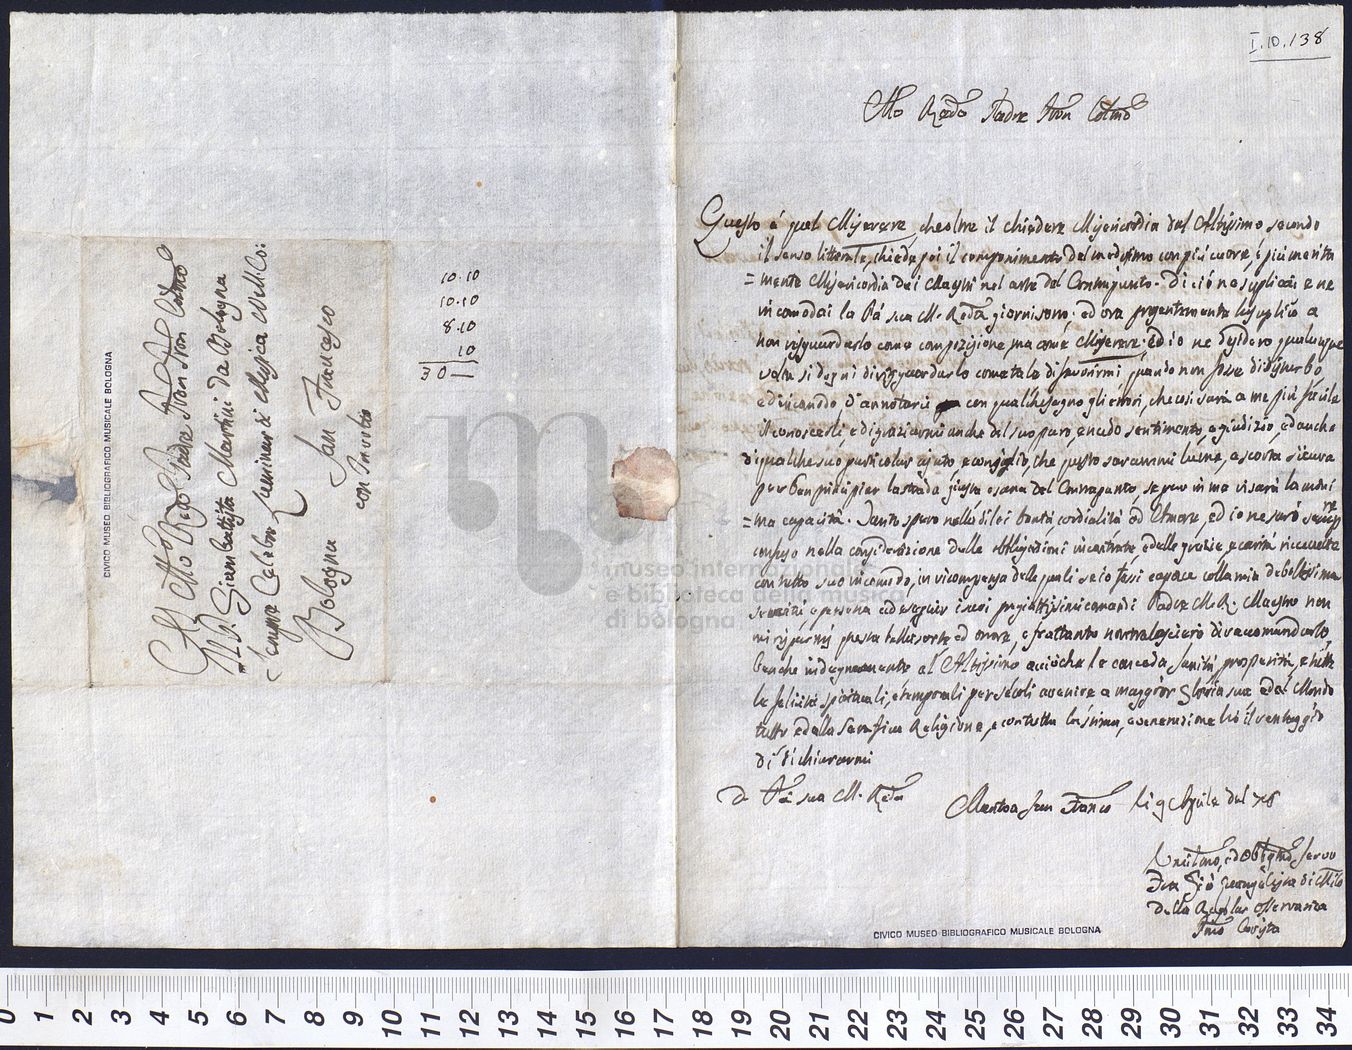 I.10.138
Mto Rdo Padre Pron Colmo
Questo è quel Miserere, che oltre il chiedere Misericordia dal Altissimo secondo
il senso litterale, chiede poi il componimento del medesimo con più cuore, e più merita
=mente Misericordia dei Maestri nel arte del Contrapunto. Di ciò ne suplicai e ne
incomodai la Pà sua M. Rda giorni sono; ed ora presentemente la suplico a
non risguardarlo come composizione ma come Miserere. Ed io ne desidero qualunque
volta si degni di risguardarlo come tale di favorirmi quando non fosse disturbo
ed incomodo d'annotarci con qualche segno gli errori, che così sarà a me più facile
il conoscerli, e di graziarmi anche del suo puro, e nudo sentimento e giudizio, ed anche
di qualche suo particolar ajuto e consiglio, che questo sarammi lume, e scorta sicura
per ben principier la strada giusta e sana del Contrapunto, se pur in me visarà la mini
=ma capacità. Tanto spero nella di lei bontà cordialità ed Amore, ed io ne sarò sempre
confuso nella considerazione delle obligazioni incontrate, e delle grazie, e carità riceveute
con tutto suo incomodo, in ricompensa delle quali se io fossi capace colla mia debolissima
servitù e persona ad eseguir i suoi pregiatissimi comandi Padre M. R. Maestro non
mi risparmj questa bella sorte ed onore, e frattanto non tralascierò di racomandarlo,
benche indegnamente al Altissimo acciòche le conceda sanità prosperità, e tutte
le felicità spirituali, e temporali per secoli avenire a maggior Gloria sua e dal Mondo
tutto e dalla Serafica Religione, e con tutta la stima, e venerazione hò il vantaggio
di dichiararmi
D Pà sua M. Rda
Mantoa San Franco li 9 Aprile del 78
Umilmo, ed Obligmo Servo
Fra Giò
della Regolar Osservanza
CIVICO MUSEO BIBLIOGRAFICO MUSICALE BOLOGNA
Al Mto Rdo Padre Pron Pron Colmo
Il P. Giambattista Martini da Bologna
sempre Celebre Luminar di Musica Ne M. Coi:
Bologna San Francesco
con Involto
10.10
10.10
8.10
10
30—
CIVICO MUSEO BIBLIOGRAFICO MUSICALE BOLOGNA
museo internazionale
e biblioteca della musica
di bologna
0 1 2 3 4 5 6 7 8 9 10 11 12 13 14 15 16 17 18 19 20 21 22 23 24 25 26 27 28 29 30 31 32 33 34